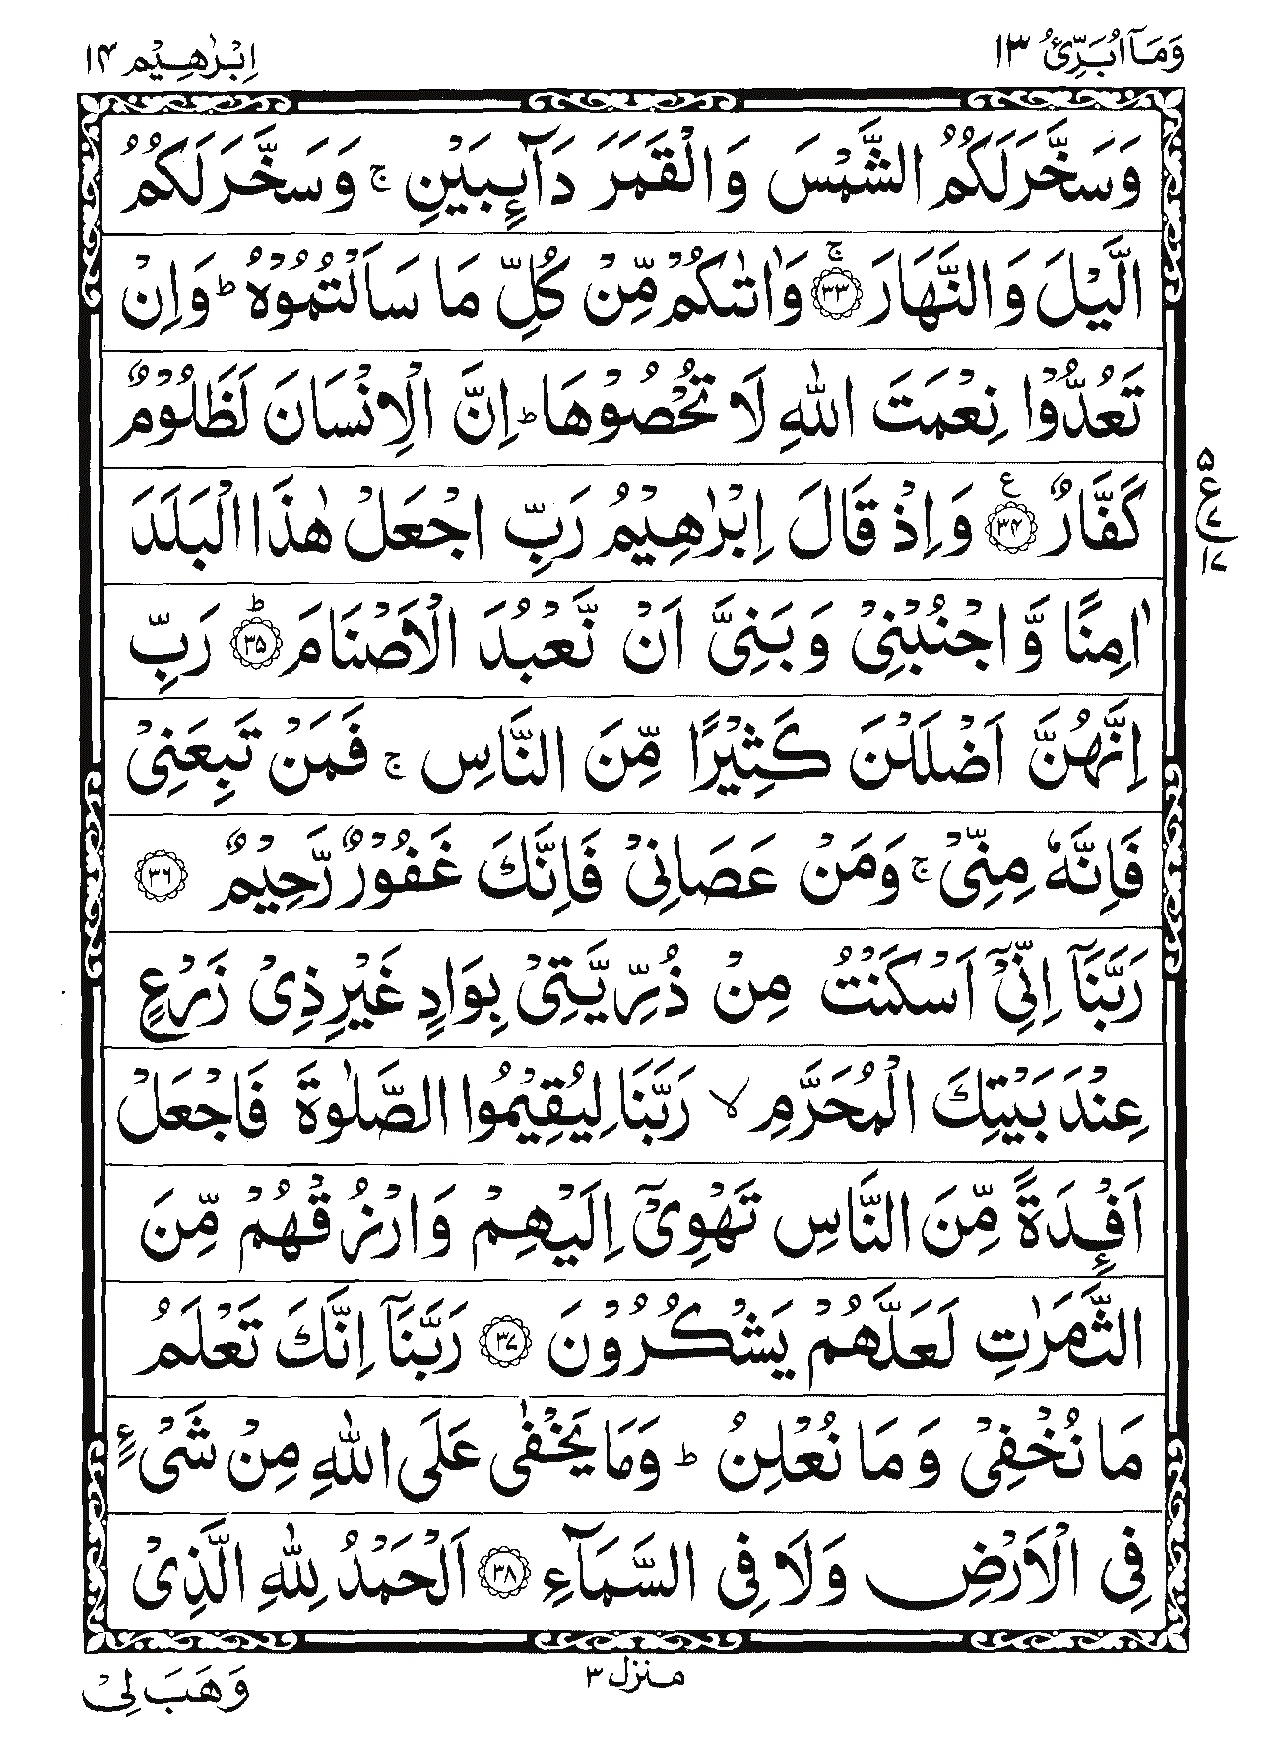 وَمَاۤ اُبَرِّئُ ١٣
اِبْرٰهِیْم ١٤
وَسَخَّرَ لَكُمُ الشَّمْسَ وَالْقَمَرَ دَآئِبَیْنِ ۚ وَسَخَّرَ لَكُمُ
الَّیْلَ وَالنَّهَارَ ۚ﴿٣٣﴾ وَاٰتٰىكُمْ مِّنْ كُلِّ مَا سَاَلْتُمُوْهُ ؕ وَاِنْ
تَعُدُّوْا نِعْمَتَ اللّٰهِ لَا تُحْصُوْهَا ؕ اِنَّ الْاِنْسَانَ لَظَلُوْمٌ
كَفَّارٌ ﴿٣٤﴾ ع وَاِذْ قَالَ اِبْرٰهِیْمُ رَبِّ اجْعَلْ هٰذَا الْبَلَدَ
اٰمِنًا وَّاجْنُبْنِیْ وَبَنِیَّ اَنْ نَّعْبُدَ الْاَصْنَامَ ؕ﴿٣٥﴾ رَبِّ
اِنَّهُنَّ اَضْلَلْنَ كَثِیْرًا مِّنَ النَّاسِ ۚ فَمَنْ تَبِعَنِیْ
فَاِنَّهٗ مِنِّیْ ۚ وَمَنْ عَصَانِیْ فَاِنَّكَ غَفُوْرٌ رَّحِیْمٌ ﴿٣٦﴾
رَبَّنَاۤ اِنِّیْۤ اَسْكَنْتُ مِنْ ذُرِّیَّتِیْ بِوَادٍ غَیْرِ ذِیْ زَرْعٍ
عِنْدَ بَیْتِكَ الْمُحَرَّمِ ۙ رَبَّنَا لِیُقِیْمُوا الصَّلٰوةَ فَاجْعَلْ
اَفْئِدَةً مِّنَ النَّاسِ تَهْوِیْۤ اِلَیْهِمْ وَارْزُقْهُمْ مِّنَ
الثَّمَرٰتِ لَعَلَّهُمْ یَشْكُرُوْنَ ﴿٣٧﴾ رَبَّنَاۤ اِنَّكَ تَعْلَمُ
مَا نُخْفِیْ وَمَا نُعْلِنُ ؕ وَمَا یَخْفٰی عَلَی اللّٰهِ مِنْ شَیْءٍ
فِی الْاَرْضِ وَلَا فِی السَّمَآءِ ﴿٣٨﴾ اَلْحَمْدُ لِلّٰهِ الَّذِیْ
٥
ع
٧
١٧
منزل ٣
وَهَبَ لِیْ